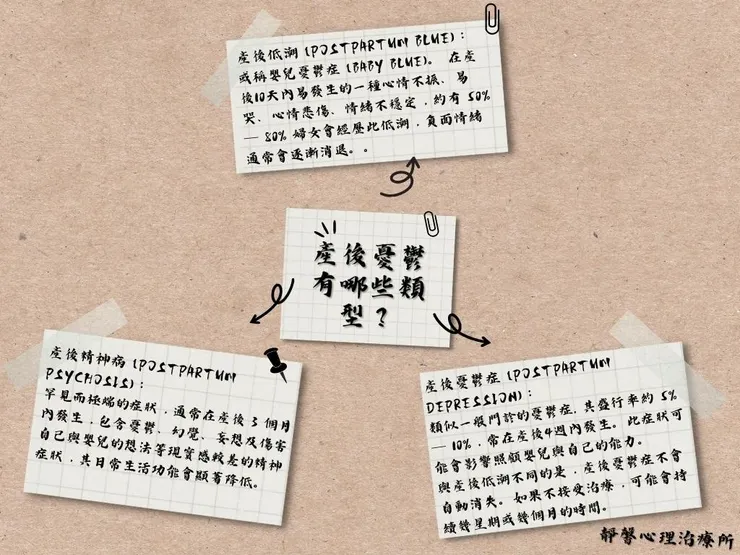 產後低潮 (POSTPARTUM BLUE):
或稱嬰兒憂鬱症 (BABY BLUE)。在產
後10天內易發生的一種心情不振、易
哭、心情悲傷、情緒不穩定,約有 50%
— 80% 婦女會經歷此低潮,負面情緒
通常會逐漸消退。。
產後憂鬱
有哪些類
型?
產後精神病 (POSTPARTUM
PSYCHOSIS):
罕見而極端的症狀,通常在產後 3 個月
內發生,包含憂鬱、幻覺、妄想及傷害
自己與嬰兒的想法等現實感較差的精神
症狀,其日常生活功能會顯著降低。
產後憂鬱症 (POSTPARTUM
DEPRESSION):
類似一般門診的憂鬱症,其盛行率約 5%
— 10%,常在產後4週內發生。此症狀可
能會影響照顧嬰兒與自己的能力。
與產後低潮不同的是,產後憂鬱症不會
自動消失。如果不接受治療,可能會持
續幾星期或幾個月的時間。
靜馨心理治療所